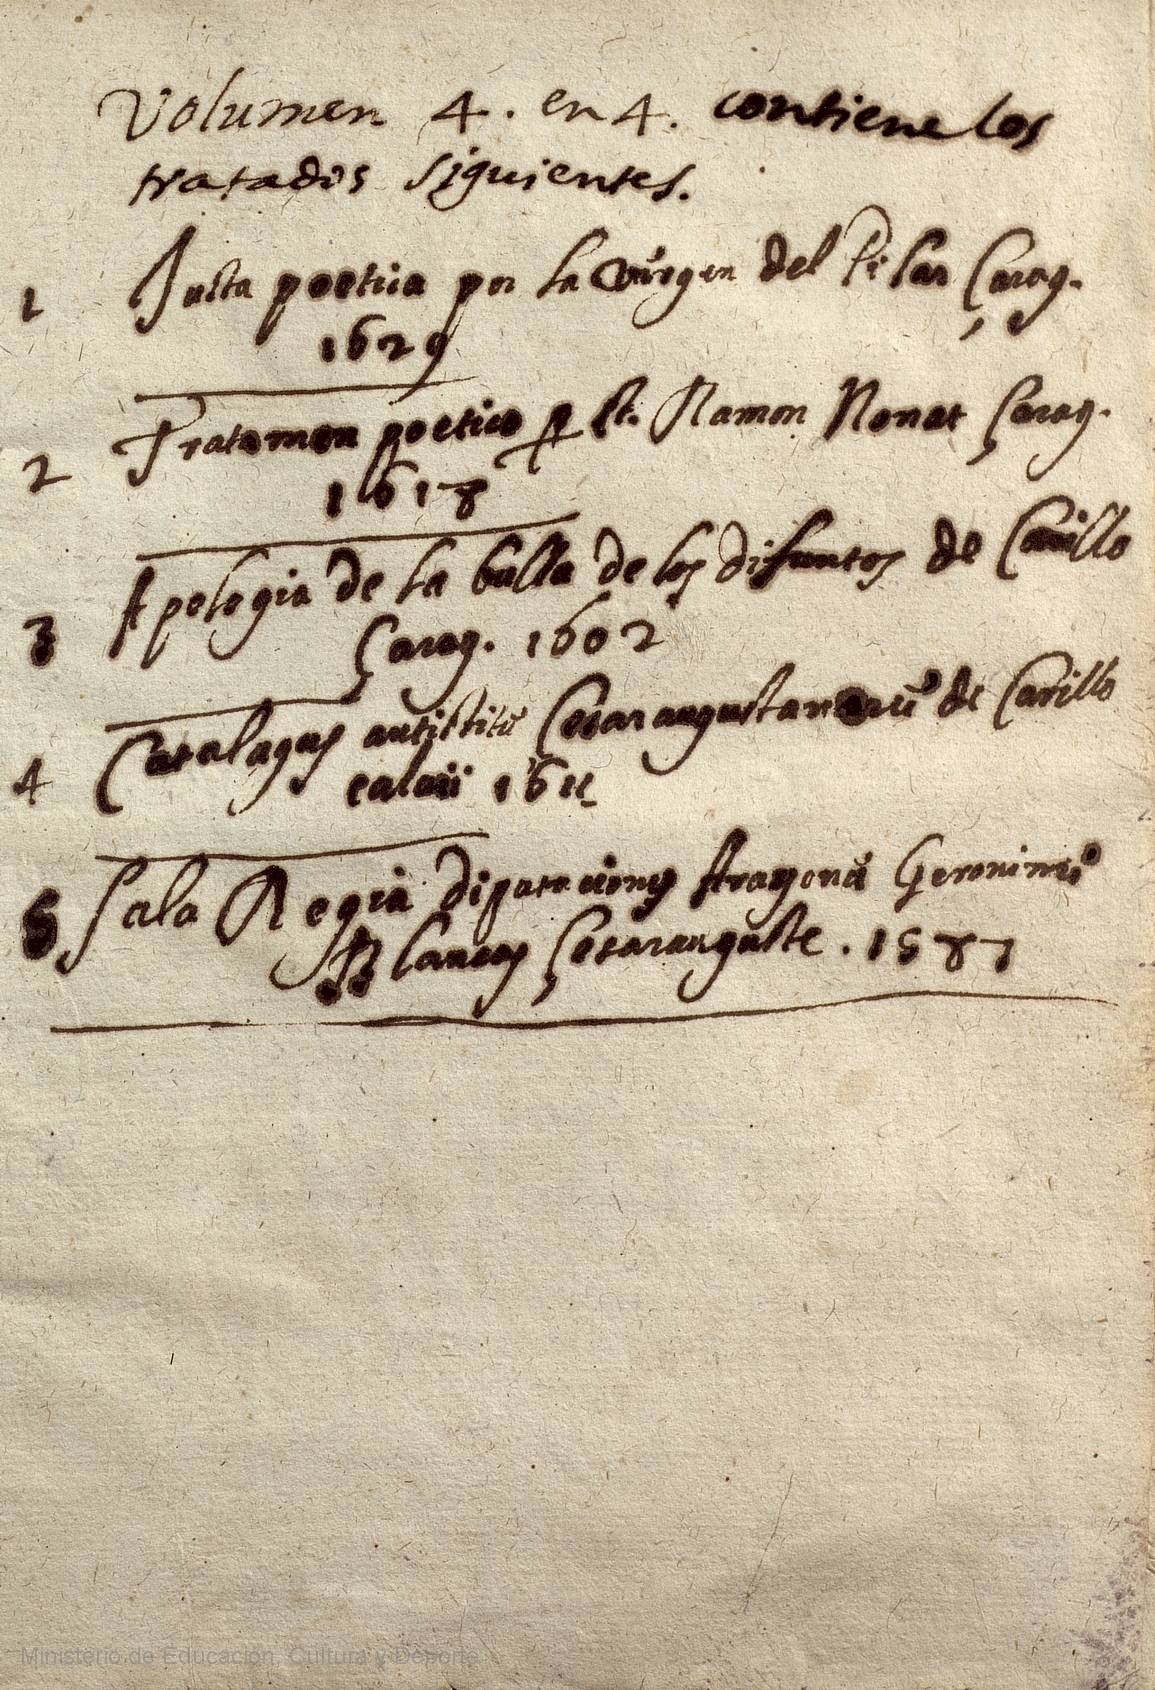 Volumen 4. en 4. contiene los
tratados siguientes.
1 Justa poetica por la Virgen del Pilar Çarag.
1629
2 Sratamen poetico p St. Ramon Nonat Çarag.
1618
3 Apologia de la bulla de los difuntos de Carillo
Çarag. 1602
4 Catalagus antistitũ Cesaraugustanorũ de Carillo
calari 1611
5 Sala Regia diputacionis Aragonũ Geronimi
Blancas Çesaraugustę. 1587
Ministerio de Educación, Cultura y Deporte